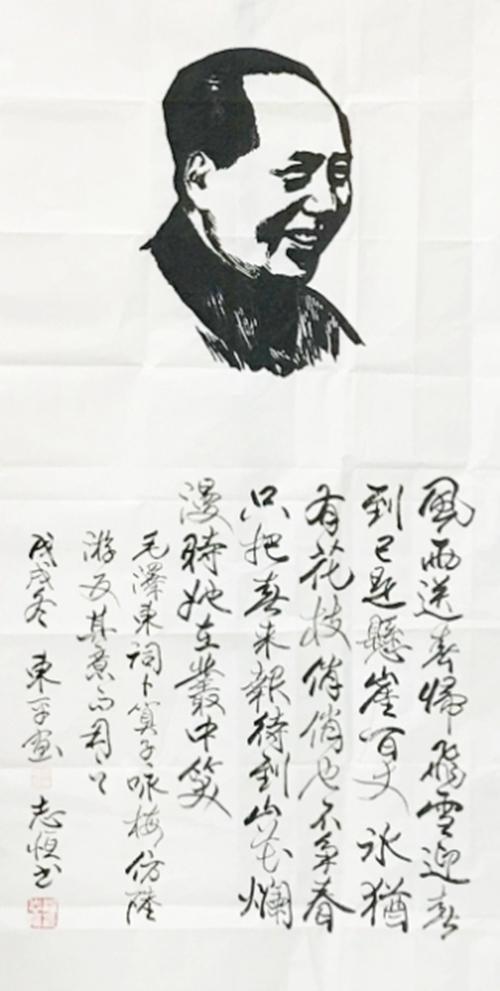 風雨送春歸飛雪迎春
到已是懸崖百丈冰猶
有花枝俏俏也不争春
只把春来報待到山花爛
漫時她在叢中笑
毛澤東詞卜算子咏梅仿陸
游反其意而用之
戊戌冬 東平畫 志恒书